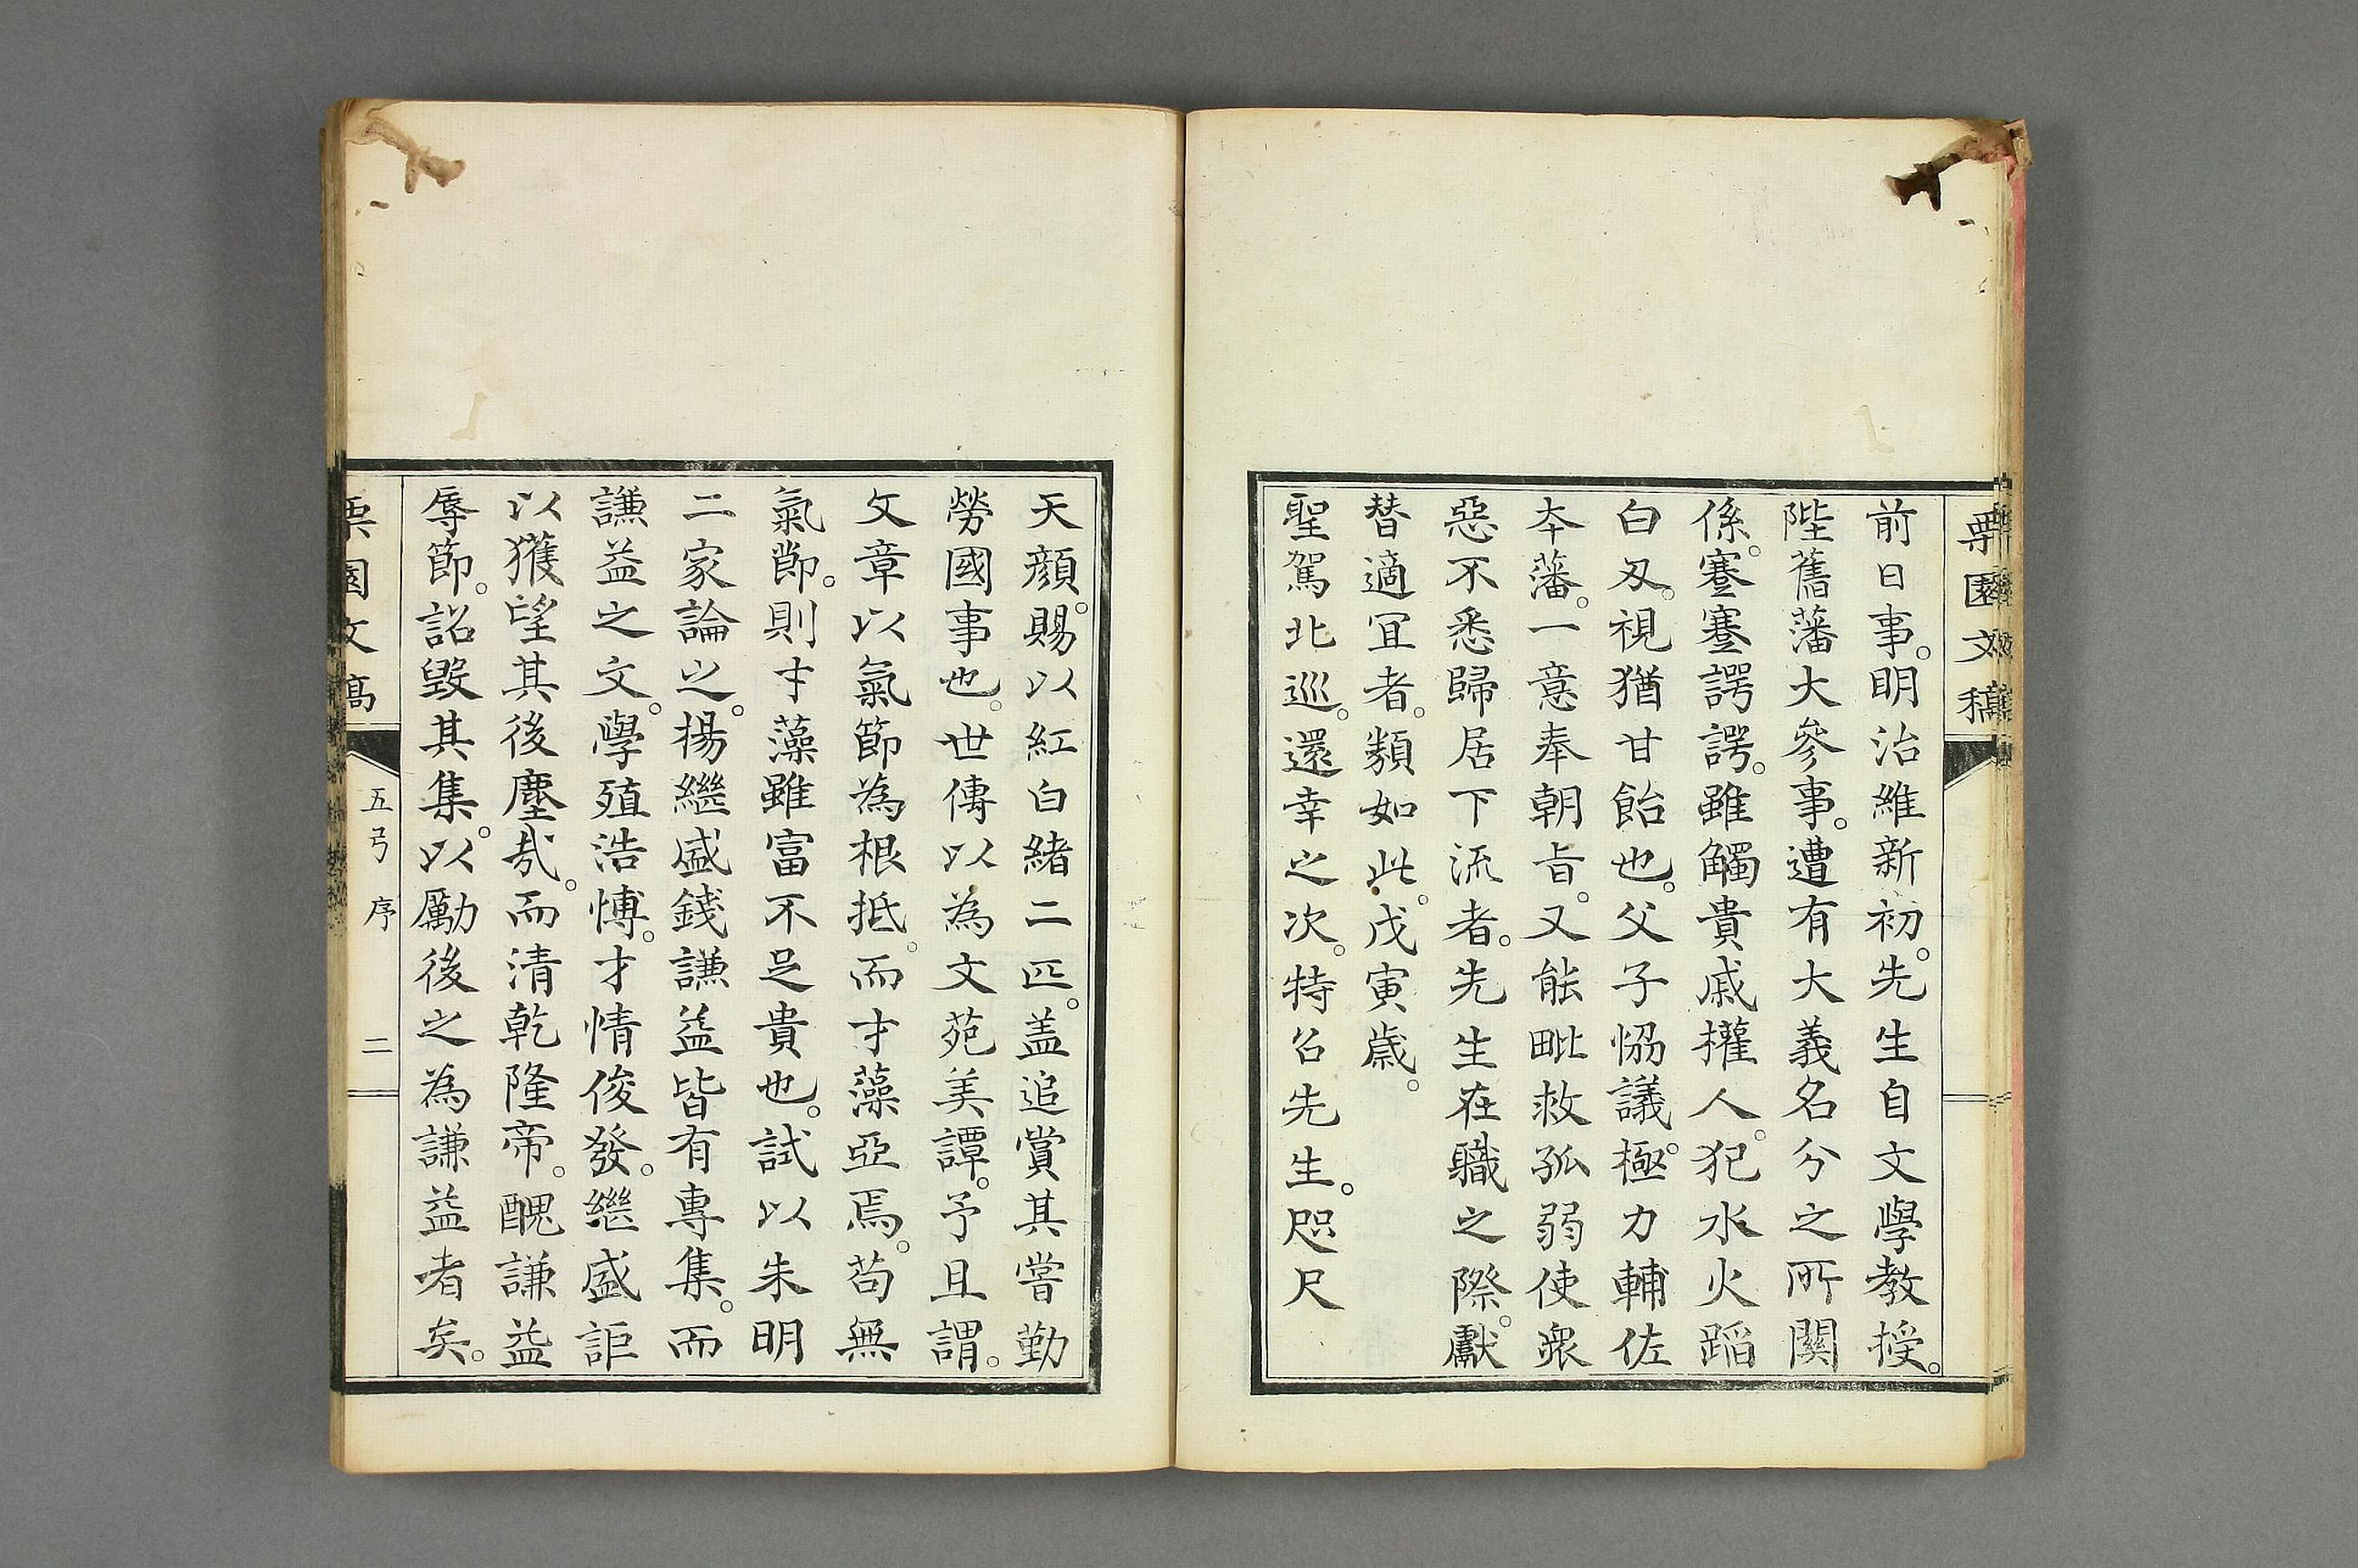 栗園文稿
前日事。明治維新初。先生自文學教授。
陛舊藩大參事。遭有大義名分之所關
係。蹇蹇諤諤。雖觸貴戚權人。犯水火蹈
白刃。視猶甘飴也。父子恊議。極力輔佐
本藩。一意奉朝旨。又能毗救孤弱使衆
惡不悉歸居下流者。先生在職之際。獻
替適冝者。類如此。戊寅歳。
聖駕北巡。還幸之次。特召先生。咫尺
天顔。賜以紅白緒二匹。盖追賞其嘗勤
勞國事也。世傳以為文苑美譚。予且謂。
文章以氣節為根抵。而才藻亞焉。苟無
氣節。則才藻雖富不足貴也。試以朱明
二家論之。揚繼盛錢謙益皆有專集。而
謙益之文。學殖浩愽。才情俊發。繼盛詎
以獲望其後塵哉。而清乾隆帝。醜謙益
辱節。詔毀其集。以勵後之為謙益者矣。
栗園文稿
五弓 序
二